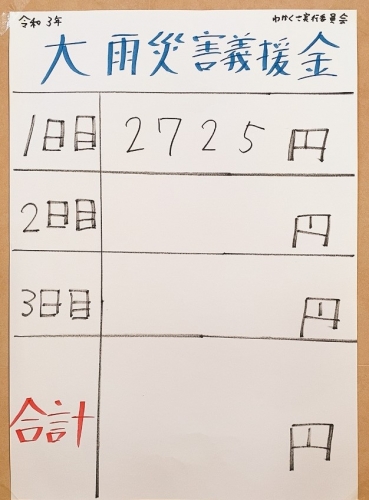 令和3年 わかくさ実行委員会
大雨災害義援金
1日目 2725円
2日目 円
3日目 円
合計 円